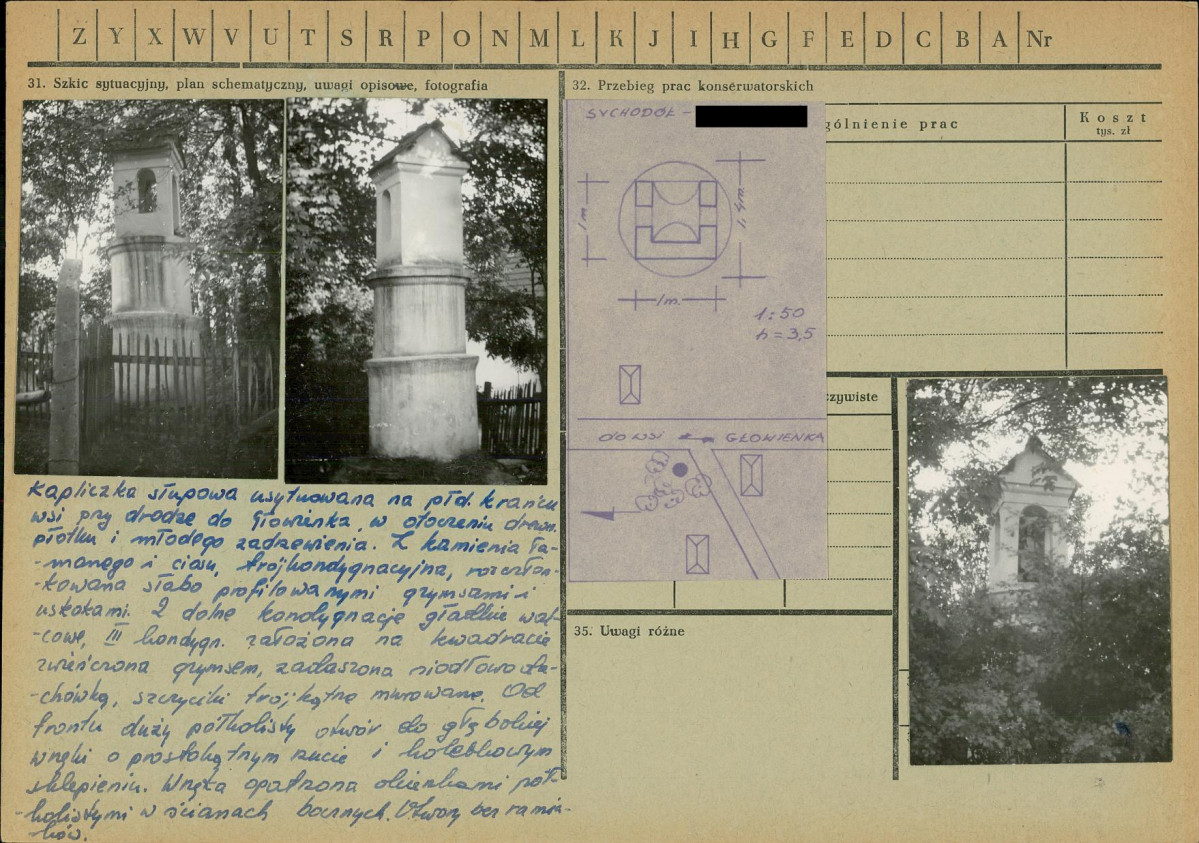 Ż Y X W V U T S R P O N M L K J I H G F E D C B A Nr
31. Szkic sytuacyjny, plan schematyczny, uwagi opisowe, fotografia
Kapliczka słupowa usytuowana na płd. krańcu
wsi przy drodze do Głowienka, w otoczeniu drewn.
płotku i młodego zadrzewienia. Z kamienia ła-
-manego i ciosu, trójkondygnacyjna, rozczłon-
-kowana słabo profilowanymi gzymsami i
uskokami. 2 dolne kondygnacje gładkie wal-
-cowe, III kondygn. założona na kwadracie
zwieńczona gzymsem, zadaszona siodłowo da-
-chówką, szczyciki trójkątne murowane. Od
frontu duży półkolisty otwór do głębokiej
wnęki o prostokątnym rzucie i kolebkowym
sklepieniu. Wnęka opatrzona okienkami pół-
-kolistymi w ścianach bocznych. Otwory bez ramia-
-ków.
32. Przebieg prac konserwatorskich
SUCHODÓŁ -
1 m
1,4m.
1m.
1:50
h = 3,5
do wsi GŁOWIENKA
gólnienie prac
Koszt
tys. zł
czywiste
35. Uwagi różne